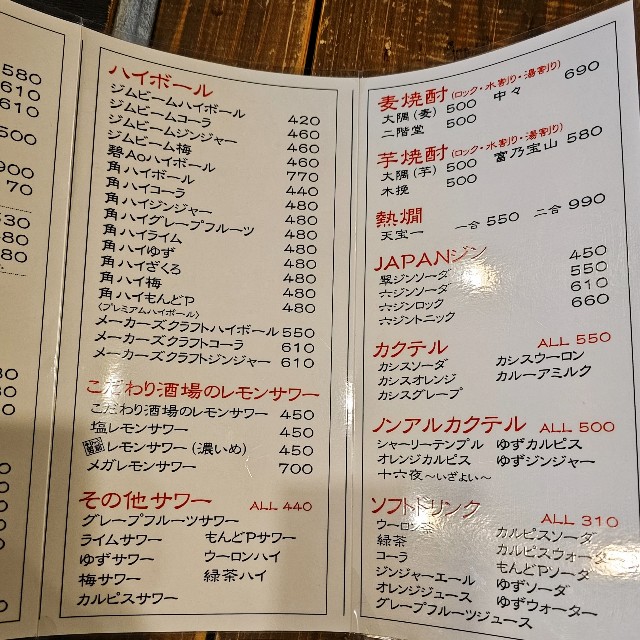 580
610
610
500
900
70
530
480
480
ハイボール
ジムビームハイボール 420
ジムビームコーラ 460
ジムビームジンジャー 460
ジムビーム梅 460
碧Aoハイボール 770
角ハイボール 440
角ハイコーラ 480
角ハイジンジャー 480
角ハイグレープフルーツ 480
角ハイライム 480
角ハイゆず 480
角ハイざくろ 480
角ハイ梅 480
角ハイもんどP 480
〈プレミアムハイボール〉
メーカーズクラフトハイボール 550
メーカーズクラフトコーラ 610
メーカーズクラフトジンジャー 610
こだわり酒場のレモンサワー
こだわり酒場のレモンサワー 450
塩レモンサワー 450
レモンサワー(濃いめ) 450
メガレモンサワー 700
その他サワー ALL 440
グレープフルーツサワー
ライムサワー もんどPサワー
ゆずサワー ウーロンハイ
梅サワー 緑茶ハイ
カルピスサワー
麦焼酎(ロック・水割り・湯割り)
大隅(麦) 500 中々 690
二階堂 500
芋焼酎(ロック・水割り・湯割り)
大隅(芋) 500 富乃宝山 580
木挽 500
熱燗
天宝一 一合 550 二合 990
JAPANジン
翠ジンソーダ 450
六ジンソーダ 550
六ジンロック 610
六ジントニック 660
カクテル ALL 550
カシスソーダ カシスウーロン
カシスオレンジ カルーアミルク
カシスグレープ
ノンアルカクテル ALL 500
シャーリーテンプル ゆずカルピス
オレンジカルピス ゆずジンジャー
十六夜〜いざよい〜
ソフトドリンク ALL 310
ウーロン茶 カルピスソーダ
緑茶 カルピスウォーター
コーラ もんどPソーダ
ジンジャーエール ゆずソーダ
オレンジジュース ゆずウォーター
グレープフルーツジュース